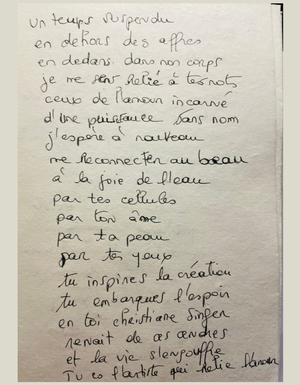 un temps suspendu
en dehors des affres
en dedans dans nos corps
je me sens relié à tes mots
ceux de l'amour incarné
d'une puissance sans nom
j'espère à nouveau
me reconnecter au beau
à la joie de l'eau
par tes cellules
par ton âme
par ta peau
par tes yeux
tu inspires la création
tu embarques l'espoir
en toi christiane Singer
renait de ces cendres
et la vie s'engouffre
Tu es l'artiste qui relie l'amour